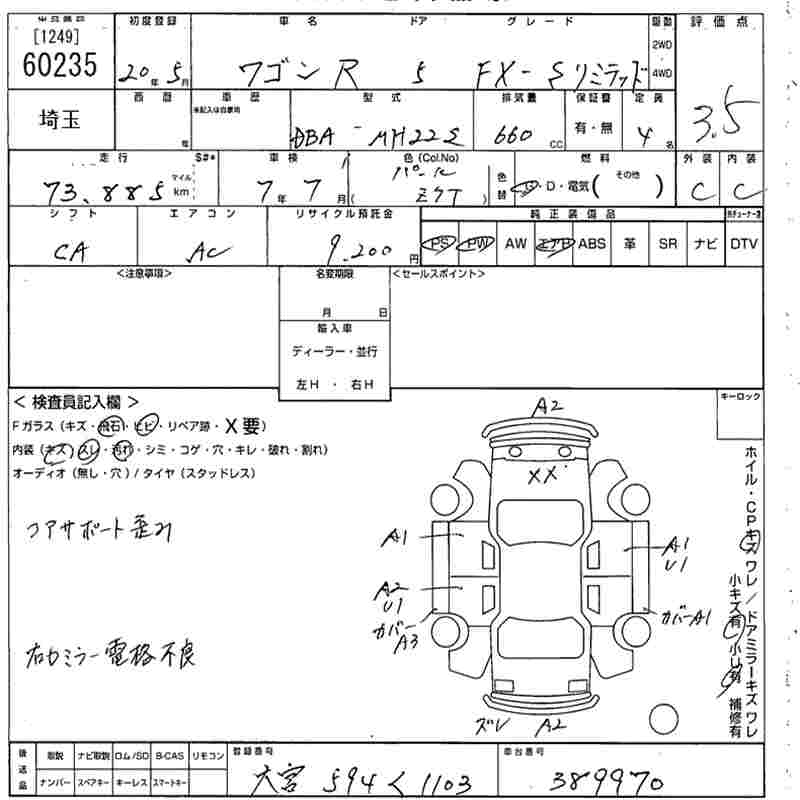 [1249]
60235
初度登録
20年5月
車名
ワゴンR
ドア
5
グレード
FX-Sリミテッド
駆動
2WD
4WD
評価点
3.5
埼玉
西暦
年
車歴
※記入は自家用
型式
DBA-MH22S
排気量
660 CC
保証書
有・無
定員
4名
走行
73,885
マイル
km
S#*
車検
7年7月
色(Col.No)
パール
ZYT
色替
燃料
G・D・電気(その他)
外装
C
内装
C
シフト
CA
エアコン
AC
リサイクル預託金
9,200円
純正装備品
PS PW AW エアB ABS 革 SR ナビ DTV
<注意事項>
名変期限
月 日
輸入車
ディーラー・並行
左H ・ 右H
<セールスポイント>
キーロック
<検査員記入欄>
Fガラス(キズ・飛石・ヒビ・リペア跡・X要)
内装(キズ・スレ・汚れ・シミ・コゲ・穴・キレ・破れ・割れ)
オーディオ(無し・穴)/タイヤ(スタッドレス)
コアサポート歪み
右ドミラー電格不良
A2
XX
A1
A1
U1
A2
U1
カバー
A3
カバーA1
ズレ
A2
ホイル・CPキズ ワレ/ドアミラーキズ ワレ
小キズ有 小U有 補修有
後送品
取説 ナビ取説 ロム/SD B-CAS リモコン
ナンバー スペアキー キーレス スマートキー
登録番号
大宮 594 く 1103
車台番号
389970